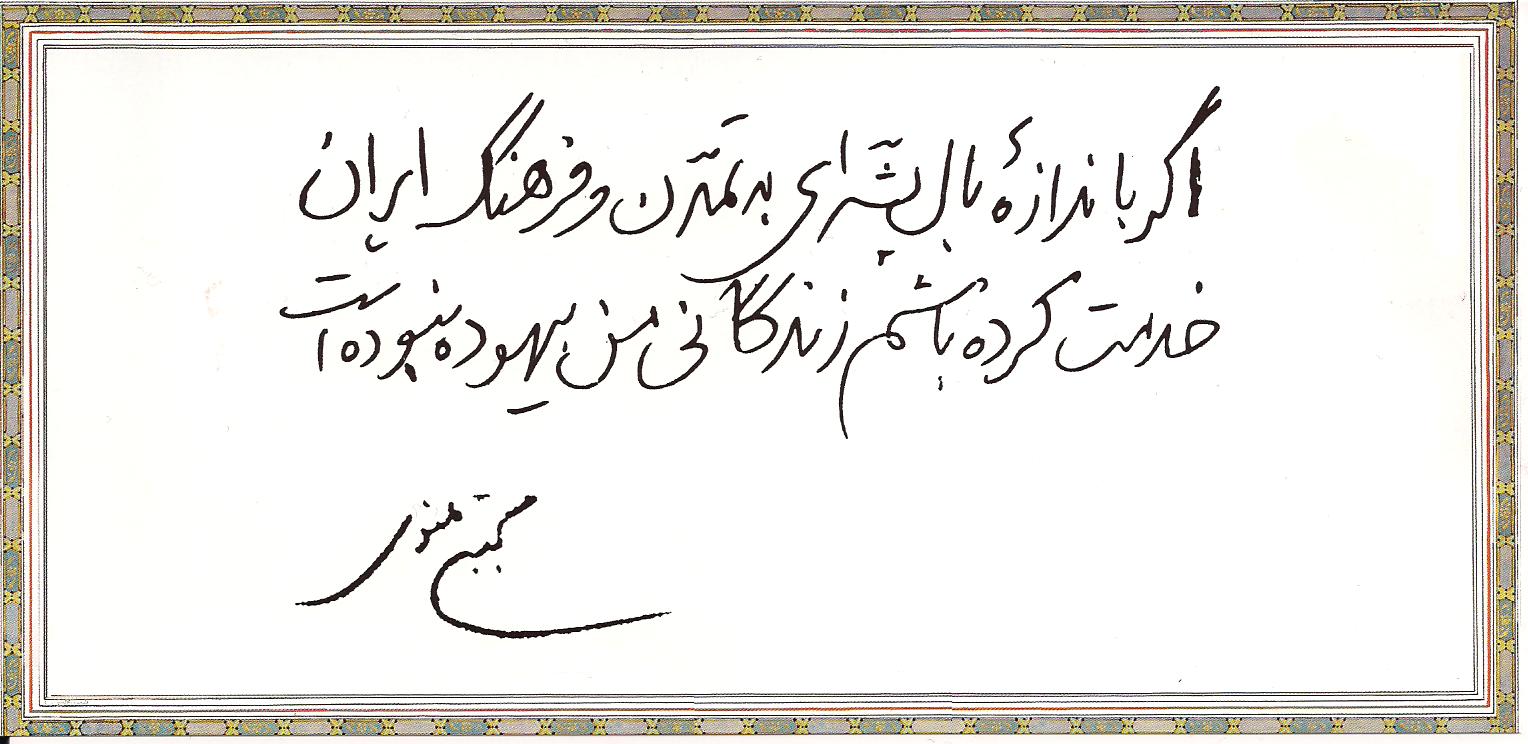 اگر باندازهٔ بال پشه‌ای به تمدّن و فرهنگ ایران
خدمت کرده باشم زندگانی من بیهوده نبوده است
مجتبی مینوی